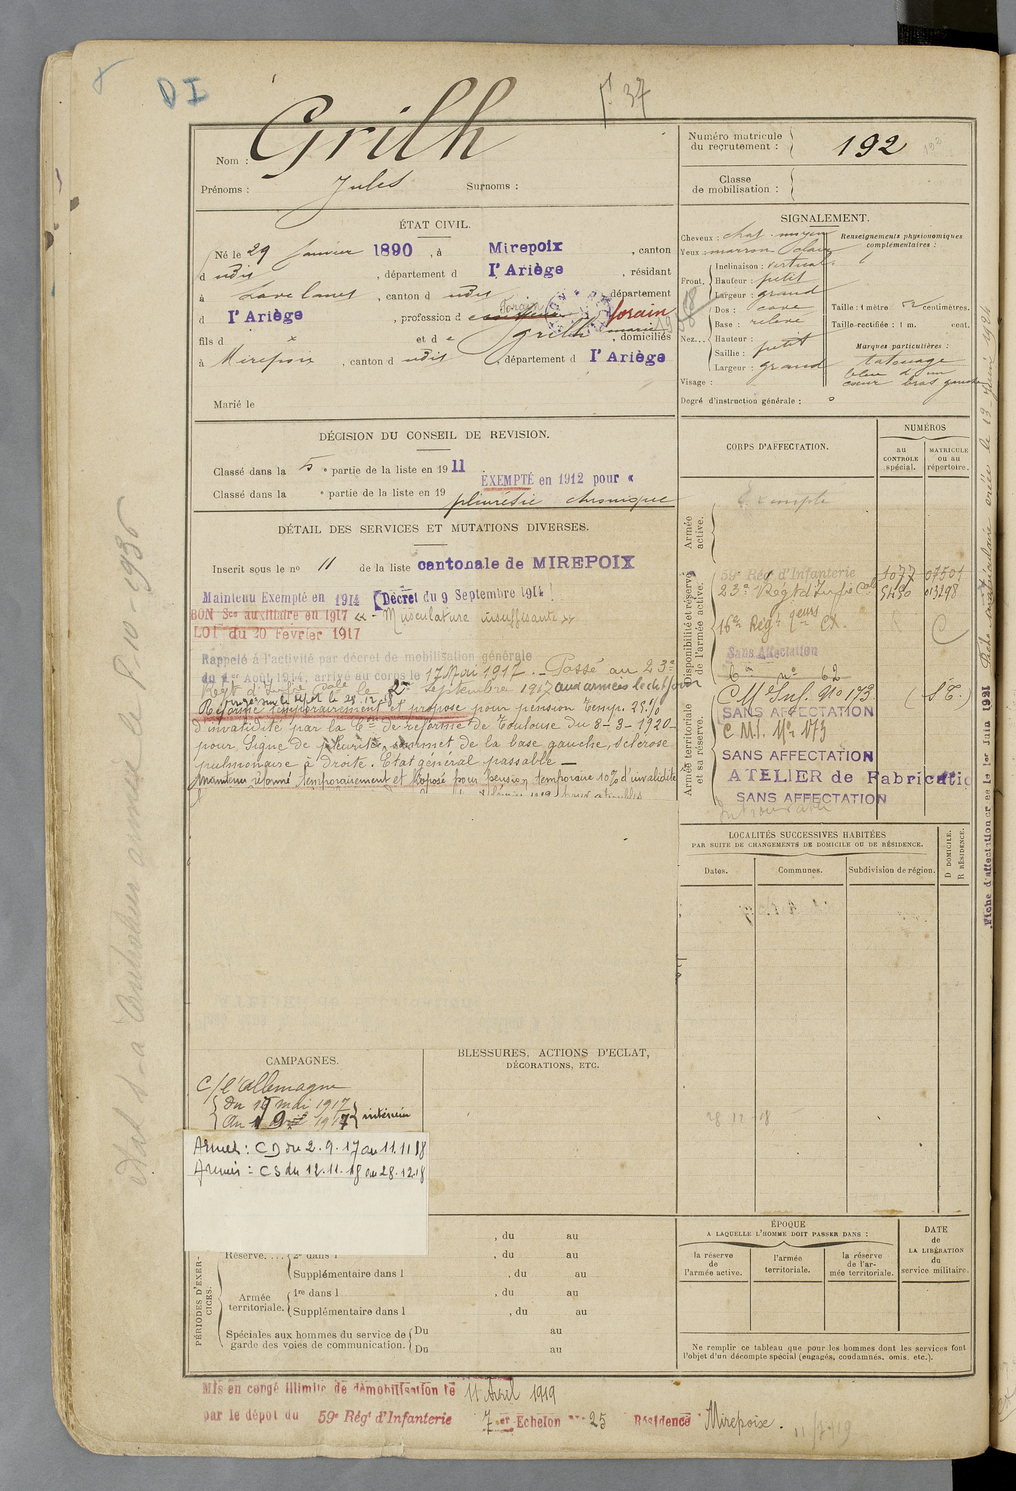 DI
37
Nom : Grilh
Prénoms : Jules Surnoms :
Numéro matricule du recrutement : 192
Classe de mobilisation :
ÉTAT CIVIL.
Né le 29 Janvier 1890, à Mirepoix, canton
d udis, département d l'Ariège, résidant
à Lavelanet, canton d udis, département
d l'Ariège, profession d Forain forain
fils d x et de Grilh Marie, domiciliés
à Mirepoix, canton d udis, département d l'Ariège
Marié le
SIGNALEMENT.
Cheveux : chat. moyen
Yeux : marron clair
Front, Inclinaison : vertical
Hauteur : petit
Largeur : grand
Nez... Dos : cave
Base : relevé
Hauteur :
Saillie : petit
Largeur : grand
Visage :
Degré d'instruction générale :
Renseignements physionomiques complémentaires :
Taille : 1 mètre centimètres.
Taille-rectifiée : 1 m. cent.
Marques particulières :
tatouage
bleu d'un
cœur bras gauche
DÉCISION DU CONSEIL DE REVISION.
Classé dans la 5e partie de la liste en 1911
EXEMPTÉ en 1912 pour «
Classé dans la e partie de la liste en 19
pleurésie chronique
DÉTAIL DES SERVICES ET MUTATIONS DIVERSES.
Inscrit sous le no 11 de la liste cantonale de MIREPOIX
Maintenu Exempté en 1914 (Décret du 9 Septembre 1914)
BON Sce auxiliaire en 1917 « - Musculature insuffisante »
LOI du 20 Février 1917
Rappelé à l'activité par décret de mobilisation générale
du 1er Août 1914, arrivé au corps le 17 Mai 1917. Passé au 23e
Régt d'Infie cole le 2 Septembre 1917 aux armées le dit jour
Réformé temporairement et proposé pour pension Temp. 25 %
d'invalidité par la Con de réforme de Toulouse du 8-3-1920
pour, Signe de pleurite, sommet de la base gauche, sclérose
pulmonaire à droite. Etat général passable
Maintenu réformé temporairement et proposé pour pension temporaire 10% d'invalidité
CORPS D'AFFECTATION.
NUMÉROS
au CONTROLE spécial.
MATRICULE ou au répertoire.
Armée active.
Exempté
Disponibilité et réserve de l'armée active.
59e Rég d'Infanterie 1077 07501
23e Régt d'Infie Col 5430 013298
16e Rég
Sans Affectation
no 62
Armée territoriale et sa réserve.
C M Inf. No 173
SANS AFFECTATION
C. M. I. No 173
SANS AFFECTATION
ATELIER de Fabricatio
SANS AFFECTATION
LOCALITÉS SUCCESSIVES HABITÉES
PAR SUITE DE CHANGEMENTS DE DOMICILE OU DE RÉSIDENCE.
Dates. Communes. Subdivision de région. D DOMICILE. R RÉSIDENCE.
28 12 18
CAMPAGNES.
C/ l'allemagne
Du 17 mai 1917
Au 1 9 1917 intérieur
Armées : CD du 2.9.17 au 11.11.18
Armées : CS du 12.11.18 au 28.12.18
BLESSURES, ACTIONS D'ECLAT,
DÉCORATIONS, ETC.
PÉRIODES D'EXERCICES.
, du au
Réserve.... 2e dans l , du au
Supplémentaire dans l , du au
Armée territoriale. 1re dans l , du au
Supplémentaire dans l , du au
Spéciales aux hommes du service de garde des voies de communication. Du au
Du au
ÉPOQUE
A LAQUELLE L'HOMME DOIT PASSER DANS :
la réserve de l'armée active.
l'armée territoriale.
la réserve de l'armée territoriale.
DATE de LA LIBÉRATION du service militaire.
Ne remplir ce tableau que pour les hommes dont les services font
l'objet d'un décompte spécial (engagés, coudamnés, omis, etc.).
Mis en congé illimité de démobilisation le 11 Avril 1919
par le dépôt du 59e Rég' d'Infanterie 7 Echelon No 25 Résidence Mirepoix.